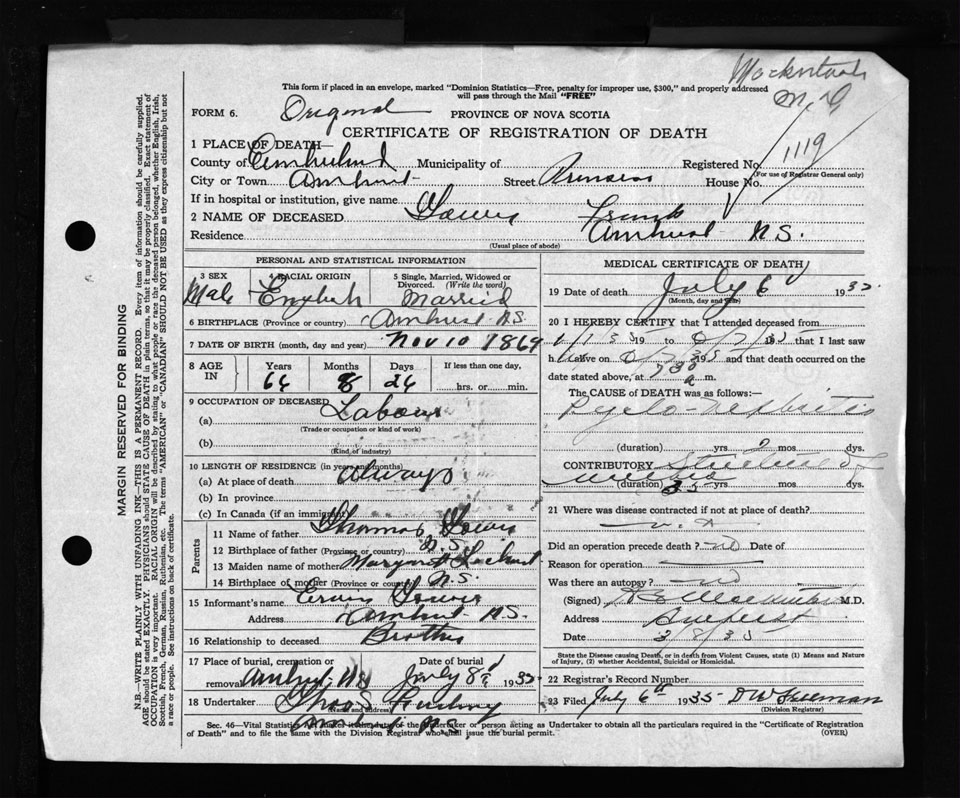 This form if placed in an envelope, marked "Dominion Statistics—Free, penalty for improper use, $300," and properly addressed
will pass through the Mail "FREE"
M.D
FORM 6. Original PROVINCE OF NOVA SCOTIA
CERTIFICATE OF REGISTRATION OF DEATH
1119
1 PLACE OF DEATH—
County of Cumberland Municipality of Registered No.
(For use of Registrar General only)
City or Town Amherst Street House No.
If in hospital or institution, give name
2 NAME OF DECEASED Frank
Residence Amherst N.S.
(Usual place of abode)
PERSONAL AND STATISTICAL INFORMATION
3 SEX RACIAL ORIGIN 5 Single, Married, Widowed or Divorced. (Write the word)
Male English Married
6 BIRTHPLACE (Province or country) Amherst N.S.
7 DATE OF BIRTH (month, day and year) Nov 10 1869
8 AGE IN Years Months Days If less than one day,
64 8 26 hrs. or min.
9 OCCUPATION OF DECEASED
(a) Labourer
(Trade or occupation or kind of work)
(b)
(Kind of industry)
10 LENGTH OF RESIDENCE (in years and months)
(a) At place of death Always
(b) In province
(c) In Canada (if an immigrant)
Parents
11 Name of father Thomas
12 Birthplace of father (Province or country) N.S.
13 Maiden name of mother Margaret Lockhart
14 Birthplace of mother (Province or country) N.S.
15 Informant's name
Address Amherst N.S.
16 Relationship to deceased Brother
17 Place of burial, cremation or removal Amherst NS Date of burial July 8th 1935
18 Undertaker
(Name and address)
Amherst N.S.
MEDICAL CERTIFICATE OF DEATH
19 Date of death July 6 1935
(Month, day and year)
20 I HEREBY CERTIFY that I attended deceased from
19 to that I last saw
h alive on and that death occurred on the
date stated above, at 7 30 a m.
The CAUSE OF DEATH was as follows:—
Pyelo-Nephritis
(duration) yrs 2 mos. dys.
CONTRIBUTORY Stricture of
urethra
(duration) 35 yrs mos. dys.
21 Where was disease contracted if not at place of death?
Did an operation precede death? no Date of
Reason of operation
Was there an autopsy? no
(Signed) M.D.
Address Amherst
Date /8/35
State the Disease causing Death, or in death from Violent Causes, state (1) Means and Nature
of Injury, (2) whether Accidental, Suicidal or Homicidal.
22 Registrar's Record Number
23 Filed July 6th 1935 D W Freeman
(Division Registrar)
Sec. 46—Vital Statistics Act makes it the duty of the undertaker or person acting as Undertaker to obtain all the particulars required in the "Certificate of Registration
of Death" and to file the same with the Division Registrar who shall issue the burial permit. (OVER)
MARGIN RESERVED FOR BINDING
N.B.—WRITE PLAINLY WITH UNFADING INK—THIS IS A PERMANENT RECORD. Every item of information should be carefully supplied.
AGE should be stated EXACTLY. PHYSICIANS should STATE CAUSE OF DEATH in plain terms, so that it may be properly classified. Exact statement of
OCCUPATION is very important. RACIAL ORIGIN will be described by stating to what people or race the deceased person belonged, whether English, Irish,
Scottish, French, German, Russian, Ruthenian, etc. The terms "AMERICAN" or "CANADIAN" SHOULD NOT BE USED as they express citizenship but not
a race or people. See instructions on back of certificate.